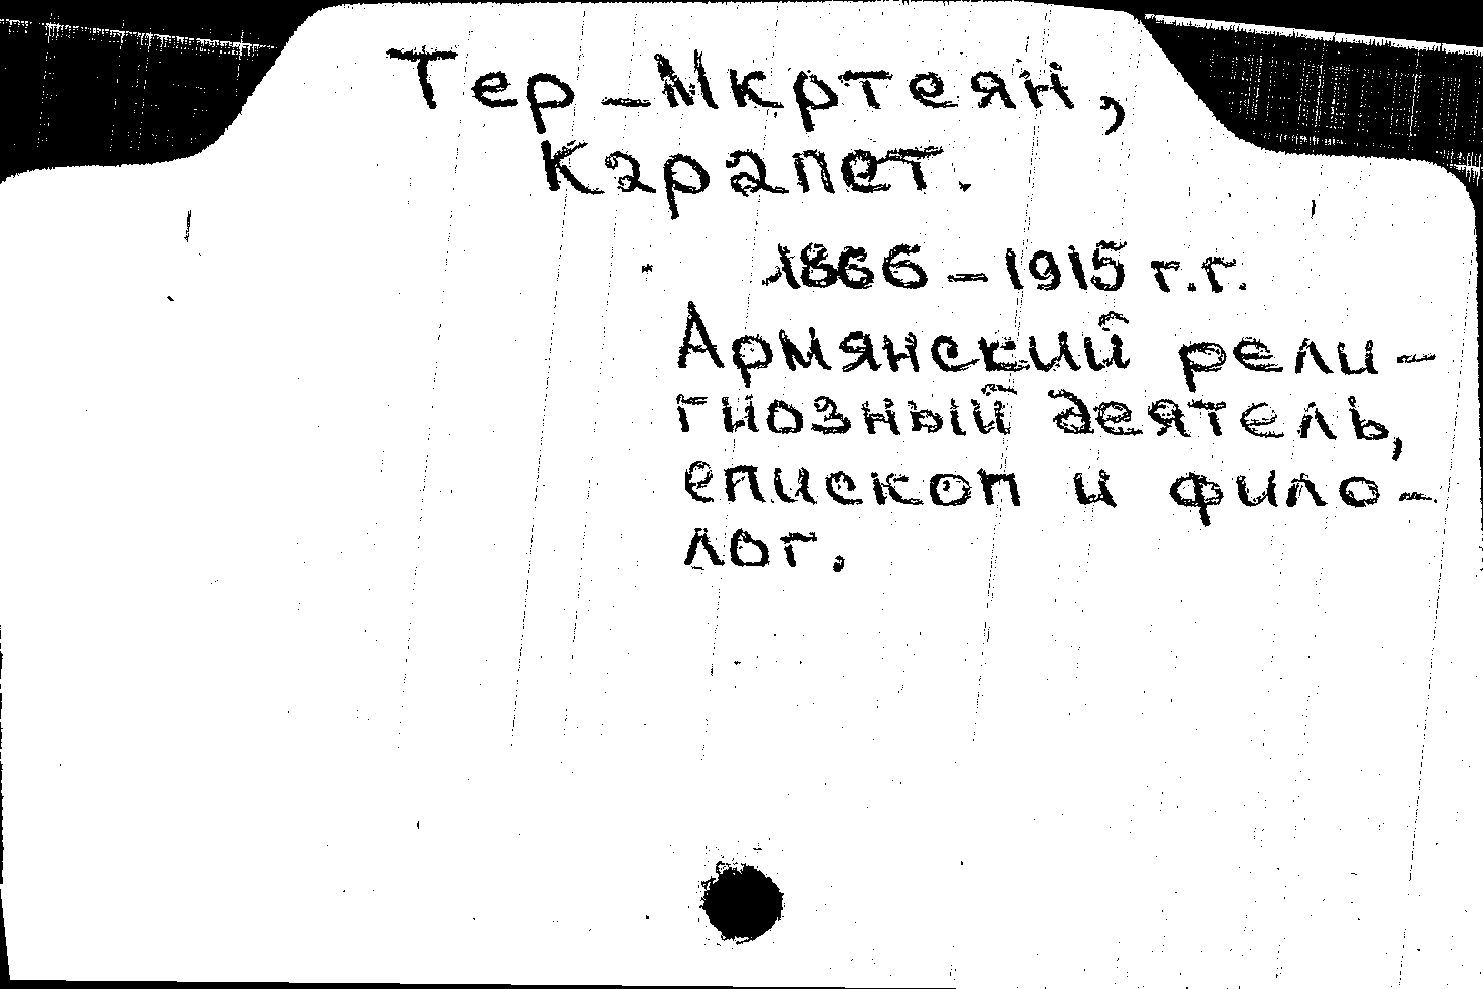 Тер-Мкртеян,
Карапет.
1866-1915 г.г.
Армянский рели-
гиозный деятель,
епископ и фило-
лог.